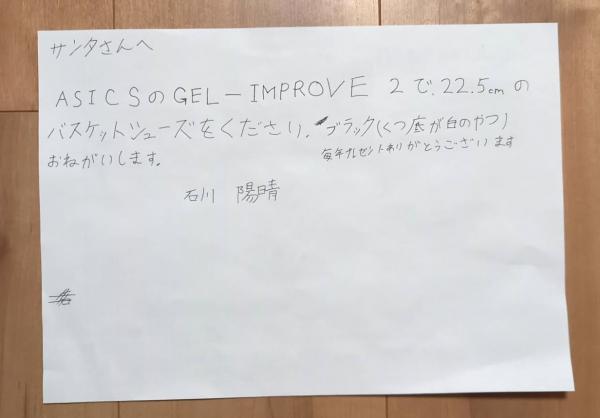 サンタさんへ
ASICSのGEL-IMPROVE 2で.22.5cmの
バスケットシューズをください. ブラック(くつ底が白のやつ)
おねがいします。
毎年プレゼントありがとうございます
石川 陽晴